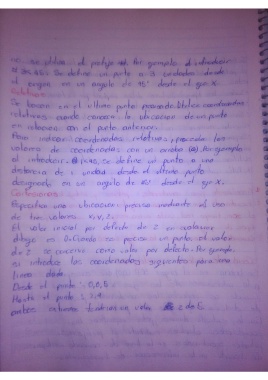 se utiliza el prefijo Por ejemplo, al introducir
se define un punto a 3 unidades desde
el origen en un ángulo de 45° desde el eje X.
Relativas
Se basan en el último punto precisado. Utilice coordenadas
relativas cuando conozca la ubicación de un punto
en relación con el punto anterior.
Para indicar coordenadas relativas, preceda los
valores de coordenadas con un arroba (@). Por ejemplo
al introducir se define un punto a una
distancia de 1 unidad desde el último punto
designado en un ángulo de 45° desde el eje X.
Cartesianas
Especifica una ubicación precisa mediante el uso
de tres valores X, Y, Z.
El valor inicial por defecto de Z en cualquier
dibujo es 0. Cuando se precisa un punto, el valor
de Z se convierte como valor por defecto. Por ejemplo
se introduce las coordenadas siguientes para una
línea dada.
Desde el punto: 0,0,5
Hasta el punto: 3,4
ambos extremos tendrían un valor Z de 5.